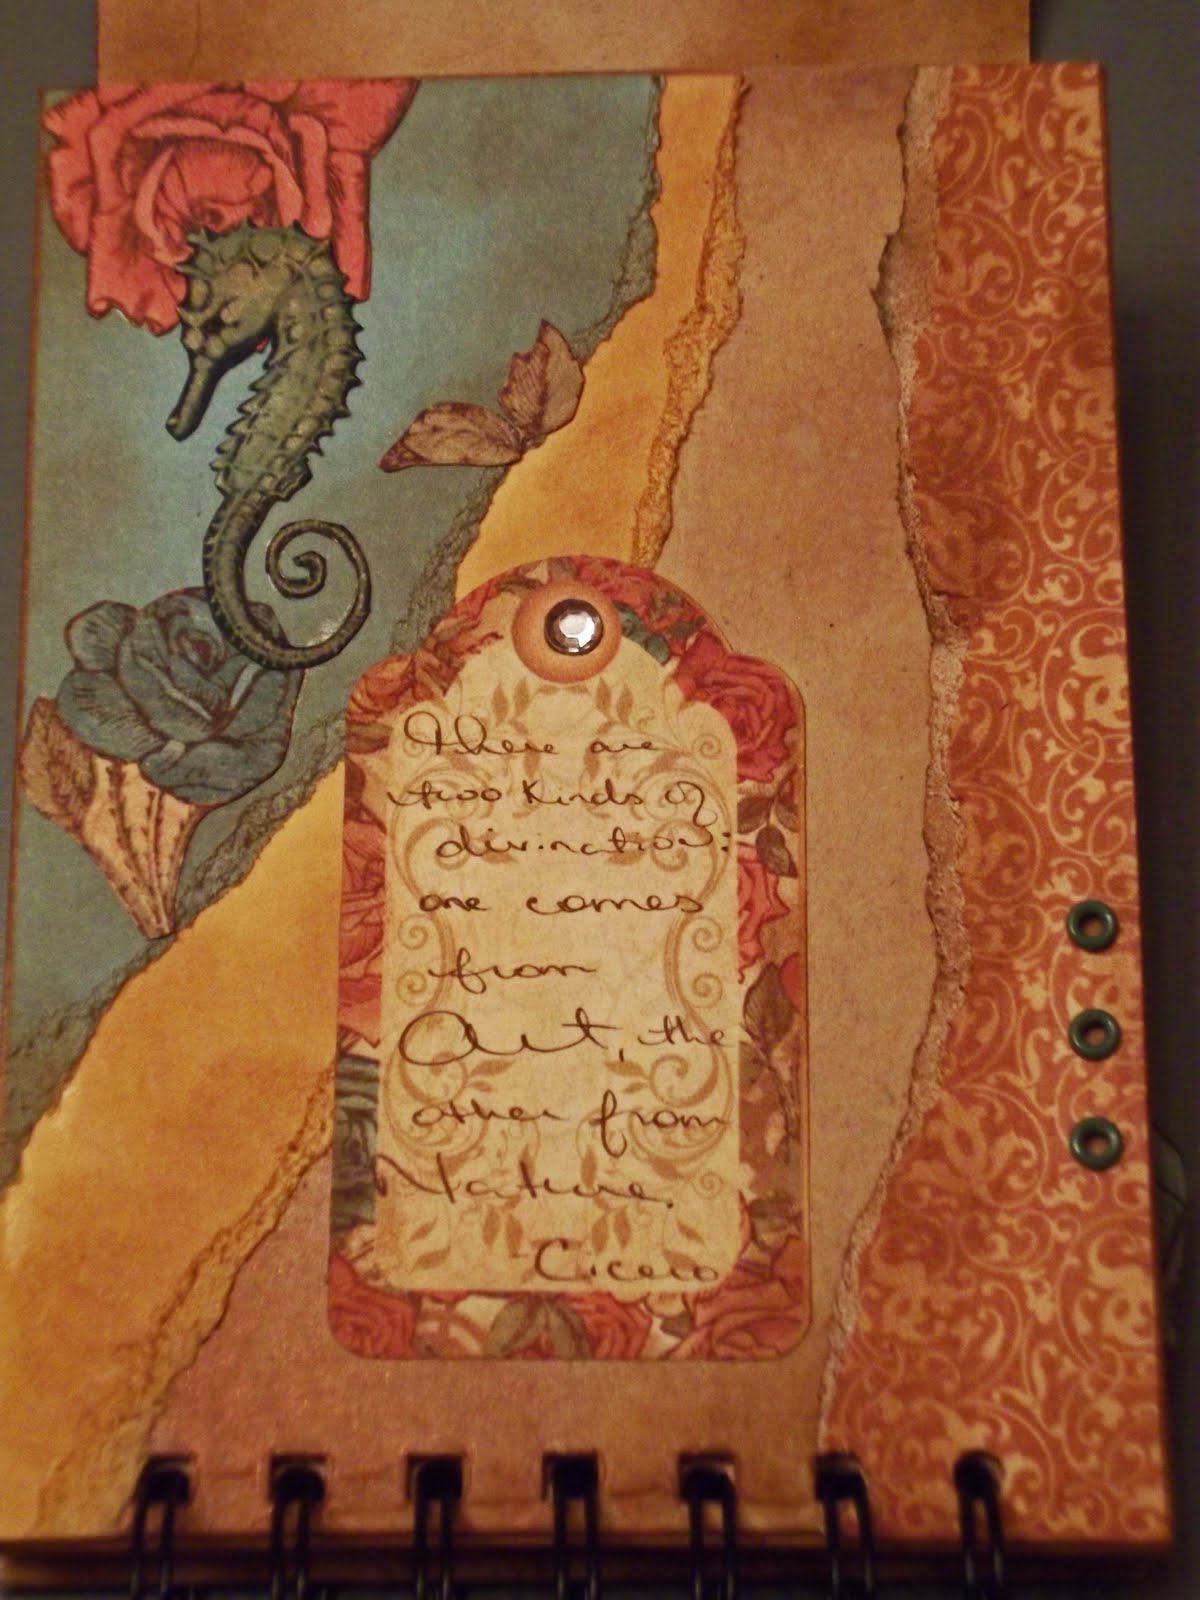 There are
two kinds of
divination:
one comes
from
Art, the
other from
Nature.
- Cicero